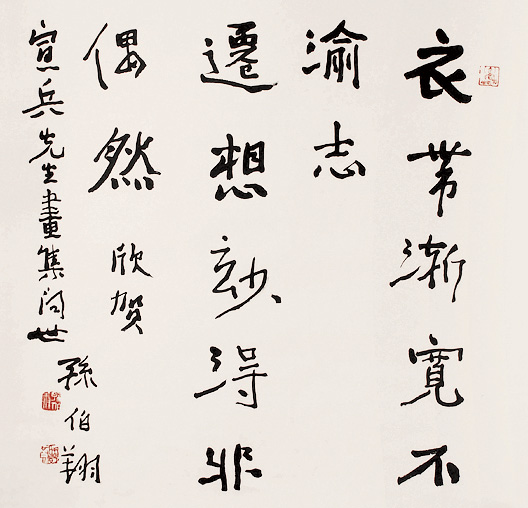 衣带渐寬不
渝志
遷想玅得非
偶然 欣贺
宣兵先生畫集问世
孫伯翔